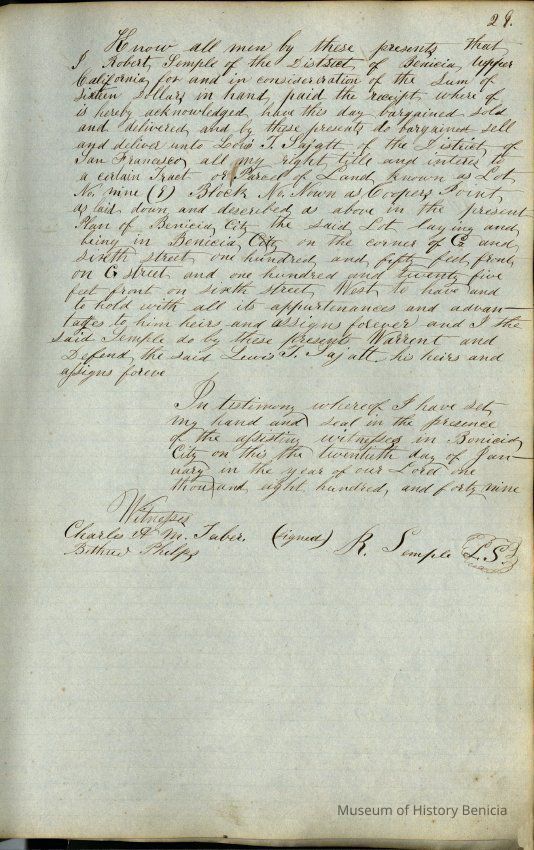 29.
Know all men by these presents that
I Robert Semple of the District of Benicia Upper
California for and in consideration of the Sum of
Sixteen Dollars in hand paid the receipt where of
is hereby acknowledged have this day bargained sold
and delivered and by these presents do bargained sell
and deliver unto Lewis T. of the District of
San Francisco all my right title and interest to
a certain Tract or Parcel of Land known as Lot
No. nine Block No. Nown as Coopers Point,
as laid down and described as above in the present
Plan of Benicia City the said Lot laying and
being in Benicia City on the corner of G and
sixth street one hundred and fifty feet front
on G street and one hundred and twenty five
feet front on sixth street West, to have and
to hold with all its appurtenances and advan-
tages to him heirs and assigns forever and I the
said Semple do by these presents Warrent and
Defend the said Lewis T. his heirs and
assigns foreve
In testimony whereof I have set
my hand and seal in the presence
of the assisting witnesses in Benicia
City on this the twentieth day of Jan-
uary in the year of our Lord one
thousand eight hundred, and forty nine
Witnesses
Charles A. M. Taber. (signed) R. Semple L.S.
Phelps
Museum of History Benicia